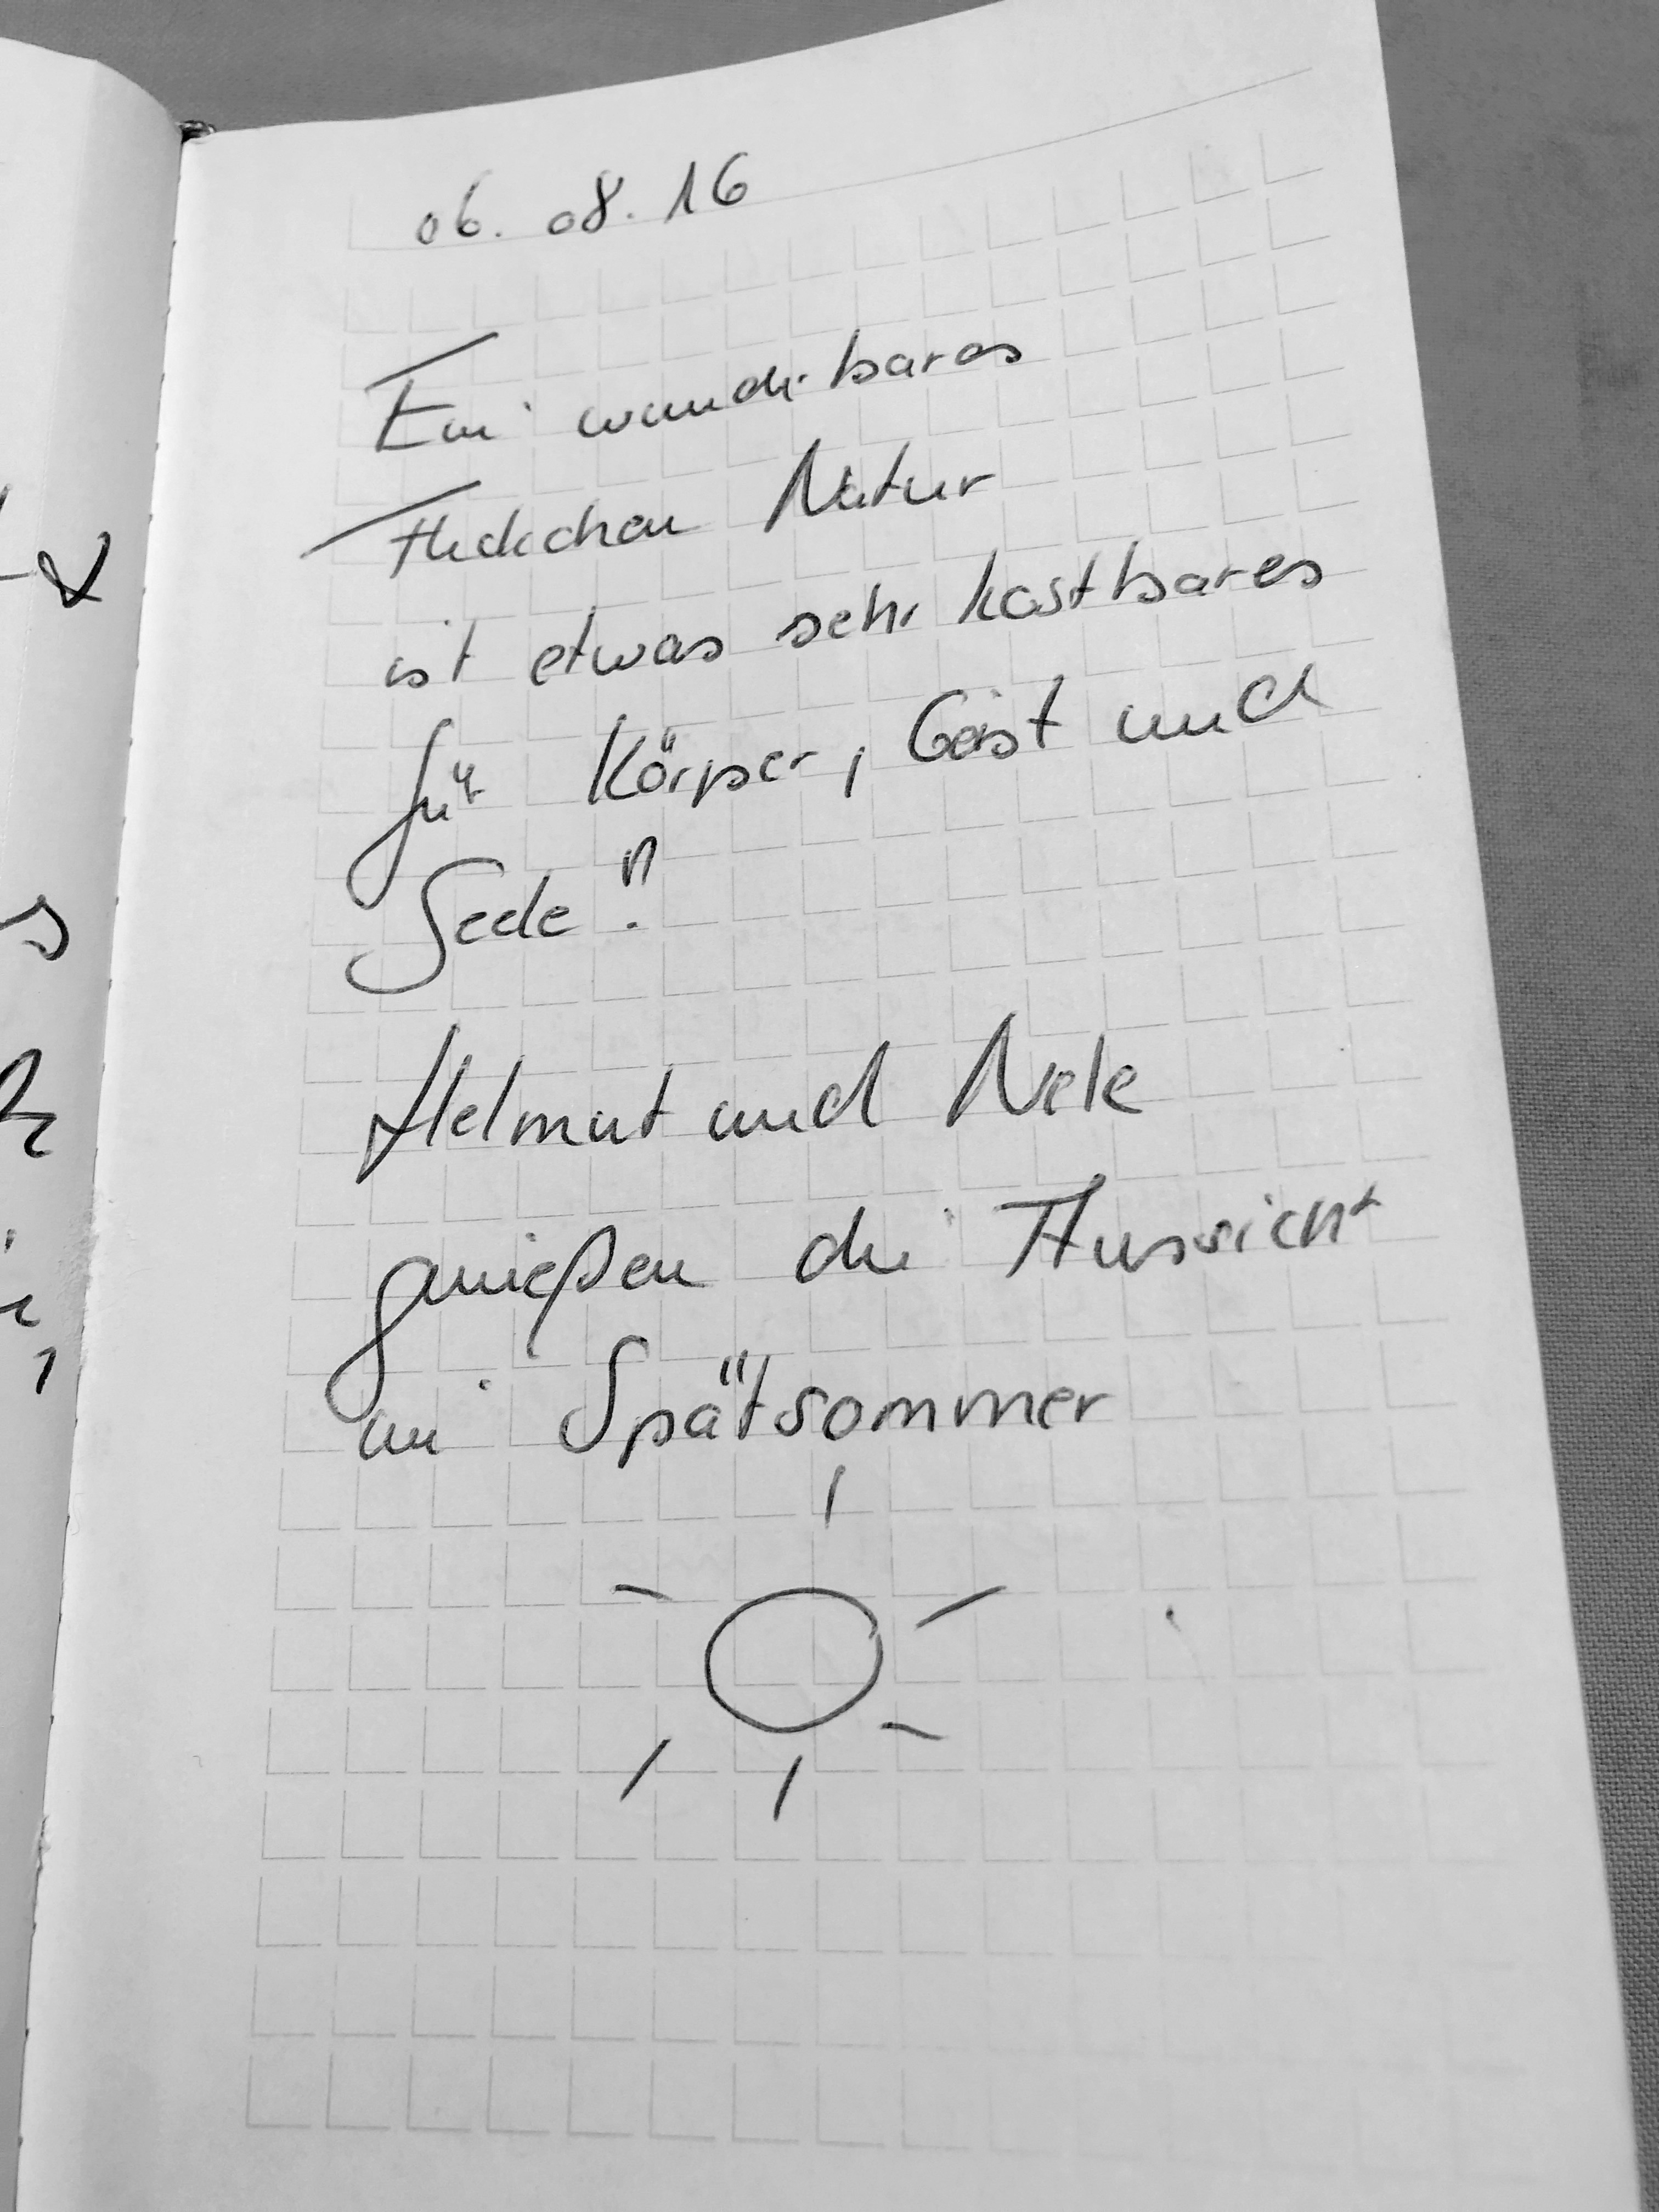 06. 08. 16
Ein wunderbares
Fleckchen Natur
ist etwas sehr kostbares
für Körper, Geist und
Seele!!
Helmut und Nele
genießen die Aussicht
im Spätsommer